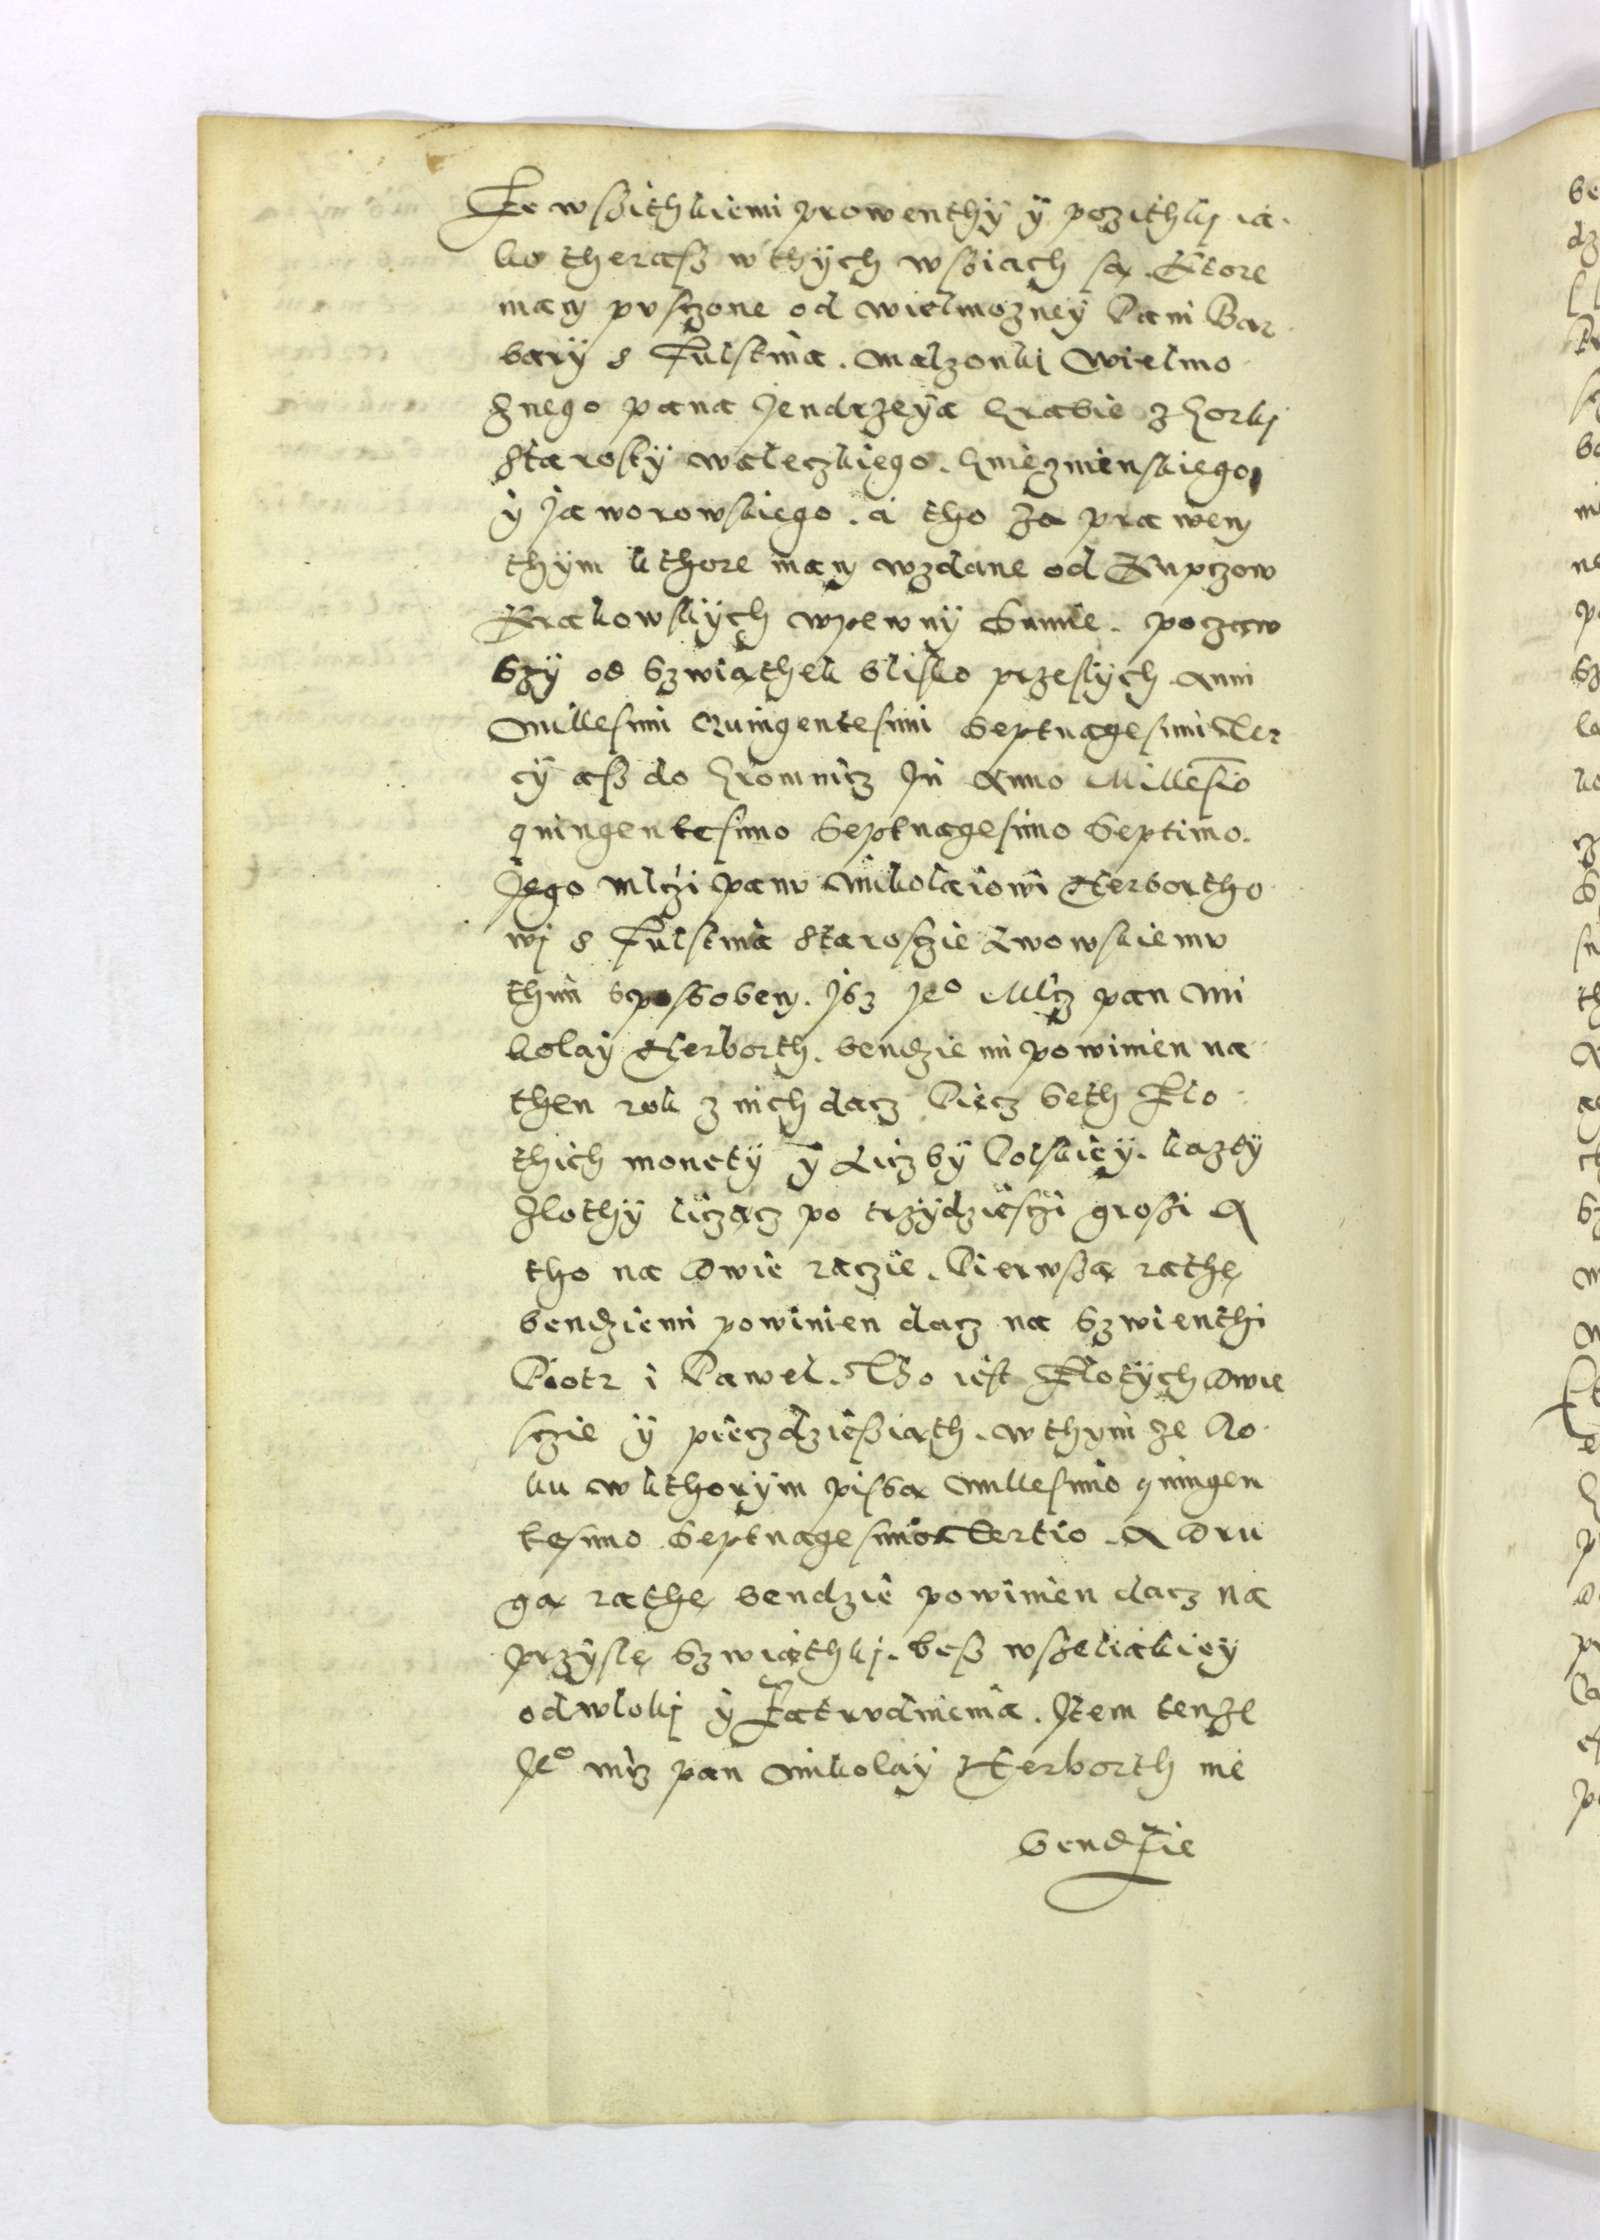 Ze wssithkiemi prowenthÿ ÿ pozithkj ia-
ko therasz w thÿch wssiach są. Ktore
mam pusczone od wielmozneÿ Pani Bar
barÿ s Fulstina. malzonki Wielmo
znego pana Jendrzeÿa hrabie z Horkj
Starostÿ waleczkiego. Gniezninskiego
ÿ Jaworowskiego. a tho za prawem
thÿm kthore mam wzdane od Kupczow
Krakowskÿch wpewnÿ Summie. poczaw
szÿ od Szwiąthek blisko przeslÿch Anni
Millesimi Quingentesimi Septuagesimi Ter
cÿ asz do hromnicz Jn Anno Millesīo
quingentesimo Septuagesimo Septimo.
Jego mlczi panu Mikolaiowi Herbortho
wj s Fulstina Starosczie Lwowskiemu
thim sposobem. Jsz Jeº Mlcz pan Mi
kolaÿ Herborth. bendzie mi powinien na
then rok z nich dacz Piecz Seth Zlo
thich monetÿ ÿ Liczbÿ Polskieÿ. kazdÿ
Zlothÿ liczącz po trzÿdziesczi groszi A
tho na dwie raczie. Pierwszą rathę
bendziemi powinien dacz na Szwienthi
Piotr i Pawel. Tho iest Zlotÿch dwie
sczie ÿ pieczdziesiąth. w thÿm ze Ro
ku w kthorÿm pissą Millesimo quingen
tesimo Septuagesimo Tertio. A dru
gą rathę bendzie powinien dacz na
przÿslę Szwiąthkj. besz wszeliakieÿ
odwlokj ÿ Zatrudnienia. Jtem tenze
Jeº mcz pan Mikolaÿ Herborth nie
bendzie